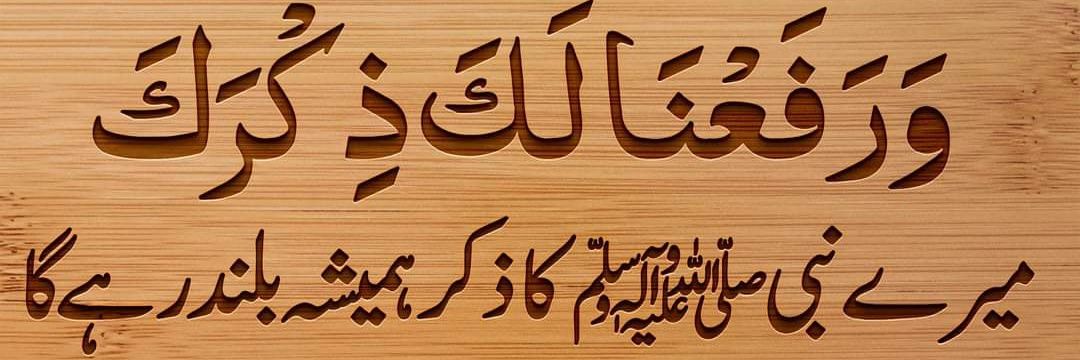 وَرَفَعْنَا لَكَ ذِكْرَكَ
میرے نبی صلّی اللہ علیہ وآلہ وسلّم کا ذکر ہمیشہ بلند رہے گا